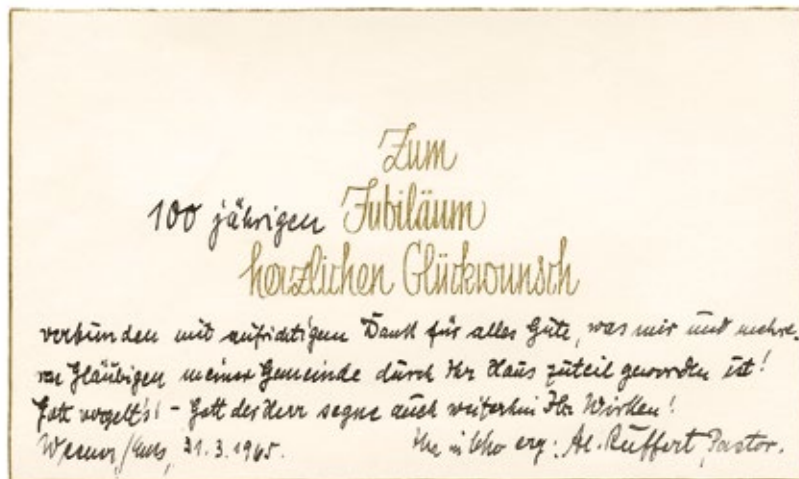 Zum
100 jährigen Jubiläum
herzlichen Glückwunsch
verbunden mit aufrichtigem Dank für alles Gute, was mir und mehre-
ren Gläubigen meiner Gemeinde durch Ihr Haus zuteil geworden ist!
Gott vergelt's! - Gott der Herr segne auch weiterhin Ihr Wirken!
Weener/Ems, 31.3.1965. Ihr erg: Al. Ruffert, Pastor.